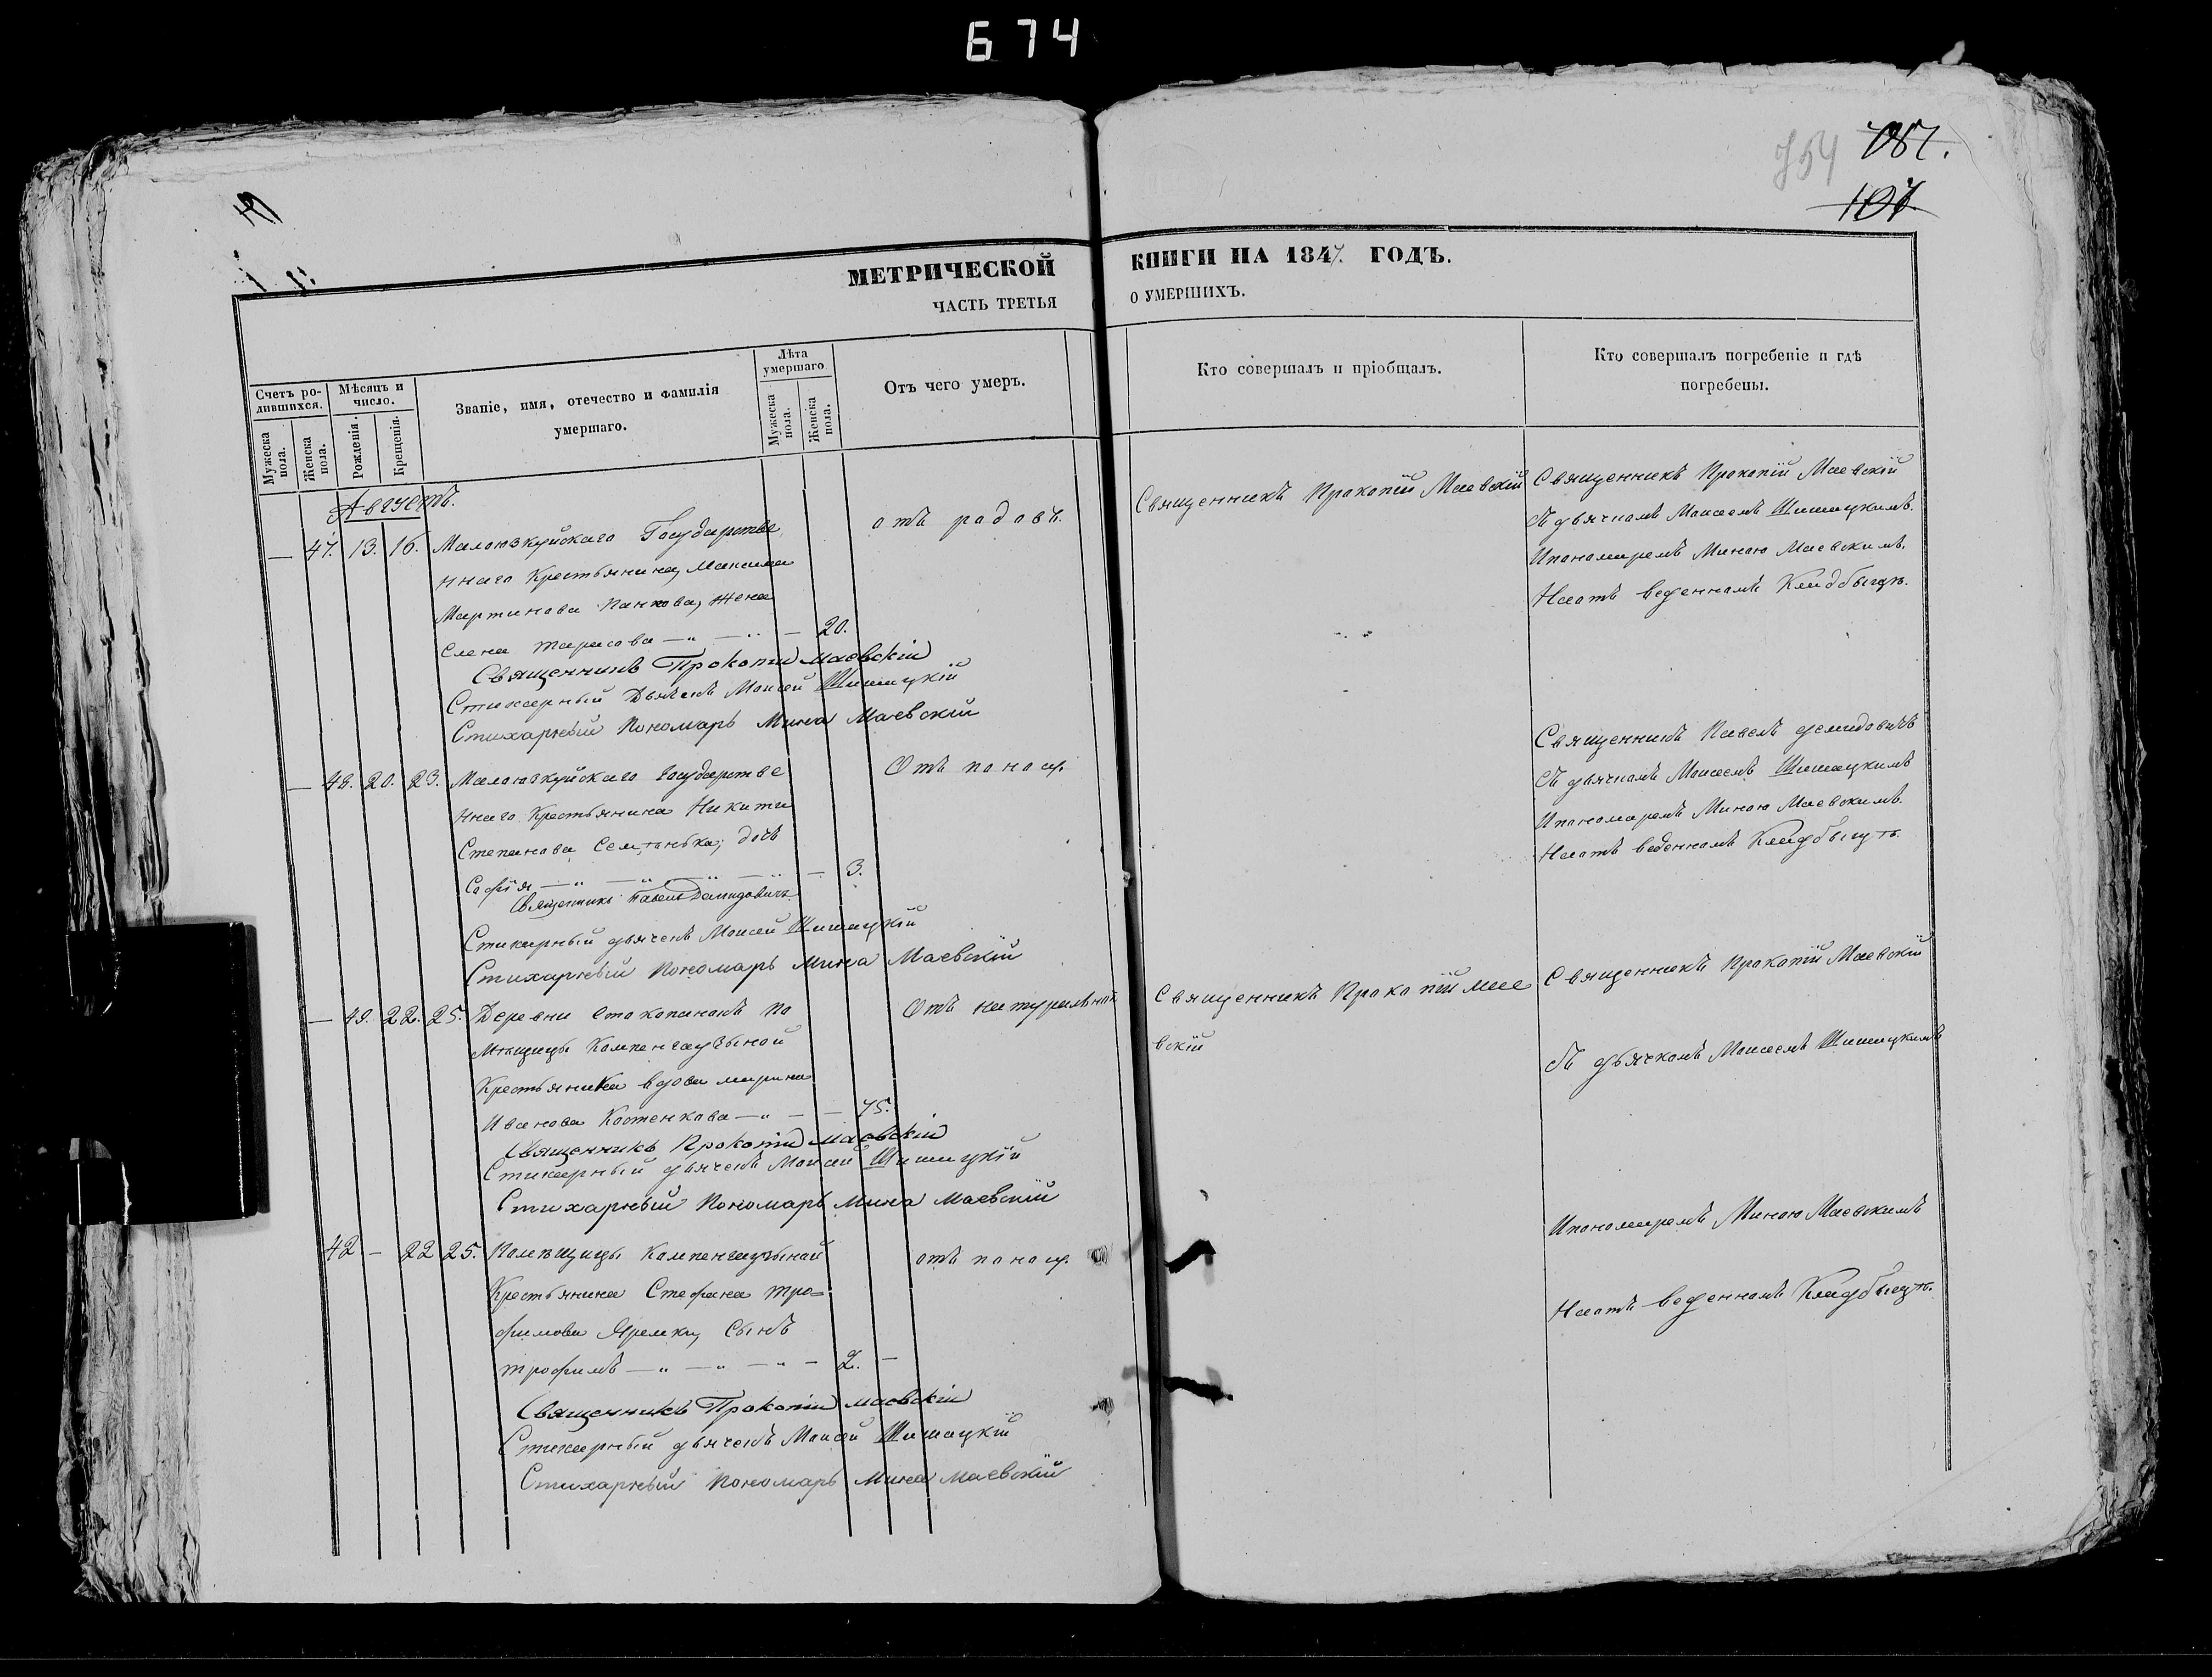 674
754
107.
МЕТРИЧЕСКОЙ КНИГИ НА 1847. ГОДЪ.
ЧАСТЬ ТРЕТЬЯ О УМЕРШИХЪ.
Счетъ ро-
дившихся.
Мужеска пола.
Женска пола.
Мѣсяцъ и
число.
Рожденія.
Крещенія.
Званіе, имя, отечество и фамилія
умершаго.
Лѣта
умершаго
Мужеска пола.
Женска пола.
Отъ чего умеръ.
Кто совершалъ и пріобщалъ.
Кто совершалъ погребеніе и гдѣ
погребены.
Августъ.
— 47. 13. 16. Малоюзкуйскаго Государстве
ннаго Крестьянина, Максима
Мартинова Панкова, жена
Елена Тарасова — „ — „ — 20.
отъ родовъ.
Священникъ Прокопій Маевскій
Стихарный Дьячекъ Моисей Шишацкій
Стихарный Пономарь Мина Маевскій
Священникъ Прокопій Маевскій
Священникъ Прокопій Маевскій
Съ дьячкомъ Моисеемъ Шишацкимъ.
Ипономаремъ Миною Маевскимъ.
На отъ веденномъ Кладбыщѣ.
— 48. 20. 23. Малоюзкуйскаго Государстве
ннаго Крестьянина Никити
Степанова Семѣнька, дочь
Софія — „ — „ — „ — „ — 3.
Отъ поносу.
Священникъ Павелъ Демидовичъ
Стихарный дьячекъ Моисей Шишацкій
Стихарный Пономарь Мина Маевскій
Священникъ Павелъ Демидовичъ
Съ дьячкомъ Моисеемъ Шишацкимъ
Ипономаремъ Миною Маевскимъ.
На отъ веденномъ Кладбыщѣ.
— 49. 22. 25. Деревни Стокопанокъ По
мѣщицы
Крестьянина вдова Марина
Иванова Костенкова — „ — — 75.
Отъ натуральной
Священникъ Прокопій Мае
вскій
Священникъ Прокопій Маевскій
Стихарный дьячекъ Моисей Шишацкій
Стихарный Пономарь Мина Маевскій
Священникъ Прокопій Маевскій
Съ дьячкомъ Моисеемъ Шишацкимъ
42 — 22 25. Помѣщицы
Крестьянина Стефана Тро=
фимова Яремки, Сынъ
Трофимъ — „ — „ — „ — 2. —
отъ поносу.
Ипономаремъ Миною Маевскимъ
На отъ веденномъ Кладбыщѣ.
Священникъ Прокопій Маевскій
Стихарный дьячекъ Моисей Шишацкій
Стихарный Пономарь Мина Маевскій